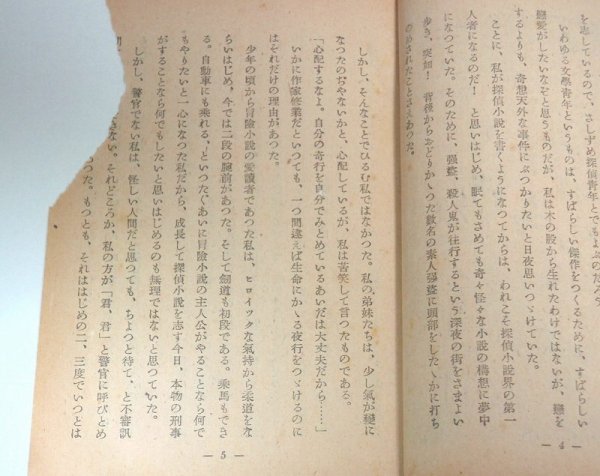 を志しているので、さしずめ探偵青年とでもよぶのだ
いわゆる文學青年というものは、すばらしい傑作をつくるために、すばらしい
戀愛がしたいなぞと思うものだが、私は木の股から生れたわけではないが、戀を
するよりも、奇想天外な事件にぶつかりたいと日夜思いつゞけていた。
ことに、私が探偵小説を書くようになつてからは、われこそ探偵小説界の第一
人者になるのだ！　と思いはじめ、眠てもさめても奇々怪々な小説の構想に夢中
になつていた。そのために、强盗、殺人鬼が往行するという深夜の街をさまよい
歩き、突如！　背後からおどりかゝつた数名の素人强盗に頭部をしたゝかに打ち
のめされたことさえあつた。
— 4 —
しかし、そんなことでひるむ私ではなかつた。私の弟妹たちは、少し氣が變に
なつたのぢやないかと、心配しているが、私は苦笑して言つたものである。
「心配するなよ。自分の奇行を自分でみとめているあいだは大丈夫だから……」
いかに作家修業だといつても、一つ間違えば生命にかゝる夜行をつゞけるのに
はそれだけの理由があつた。
少年の頃から冒險小説の愛讀者であつた私は、ヒロイツクな氣持から柔道をな
らいはじめ、今では二段の腕前があつた。そして劍道も初段である。乗馬もでき
る。自動車にも乗れる、といつたぐあいに冒險小説の主人公がやることなら何で
もやりたいと一心になつた私だから、成長して探偵小説を志す今日、本物の刑事
がすることなら何でもしたいと思いはじめるのも無理ではないと思つていた。
しかし、警官でない私は、怪しい人間だと思つても、ちよつと待て、と不審訊
さない。それどころか、私の方が「君、君」と警官に呼びとめ
もつた。もつとも、それははじめの二、三度でいつとは
— 5 —